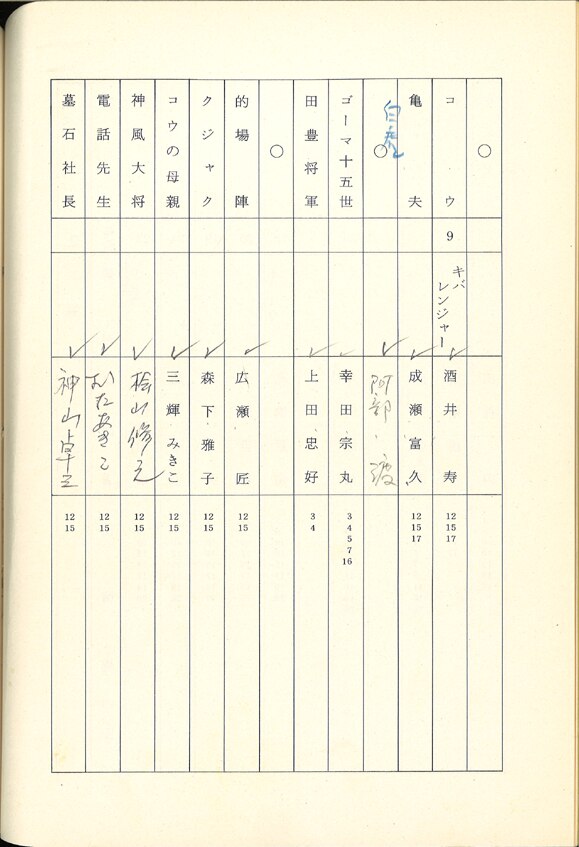 ○
コウ 9 キバレンジャー 酒井 寿 12 15 17
亀夫 成瀬富久 12 15 17
○ 白虎 阿部 渡
ゴーマ十五世 幸田宗丸 3 4 5 7 16
田豊将軍 上田忠好 3 4
○
的場 陣 広瀬 匠 12 15
クジャク 森下雅子 12 15
コウの母親 三輝みきこ 12 15
神風大将 桧山修之 12 15
電話先生 むたあきこ 12 15
墓石社長 神山卓三 12 15